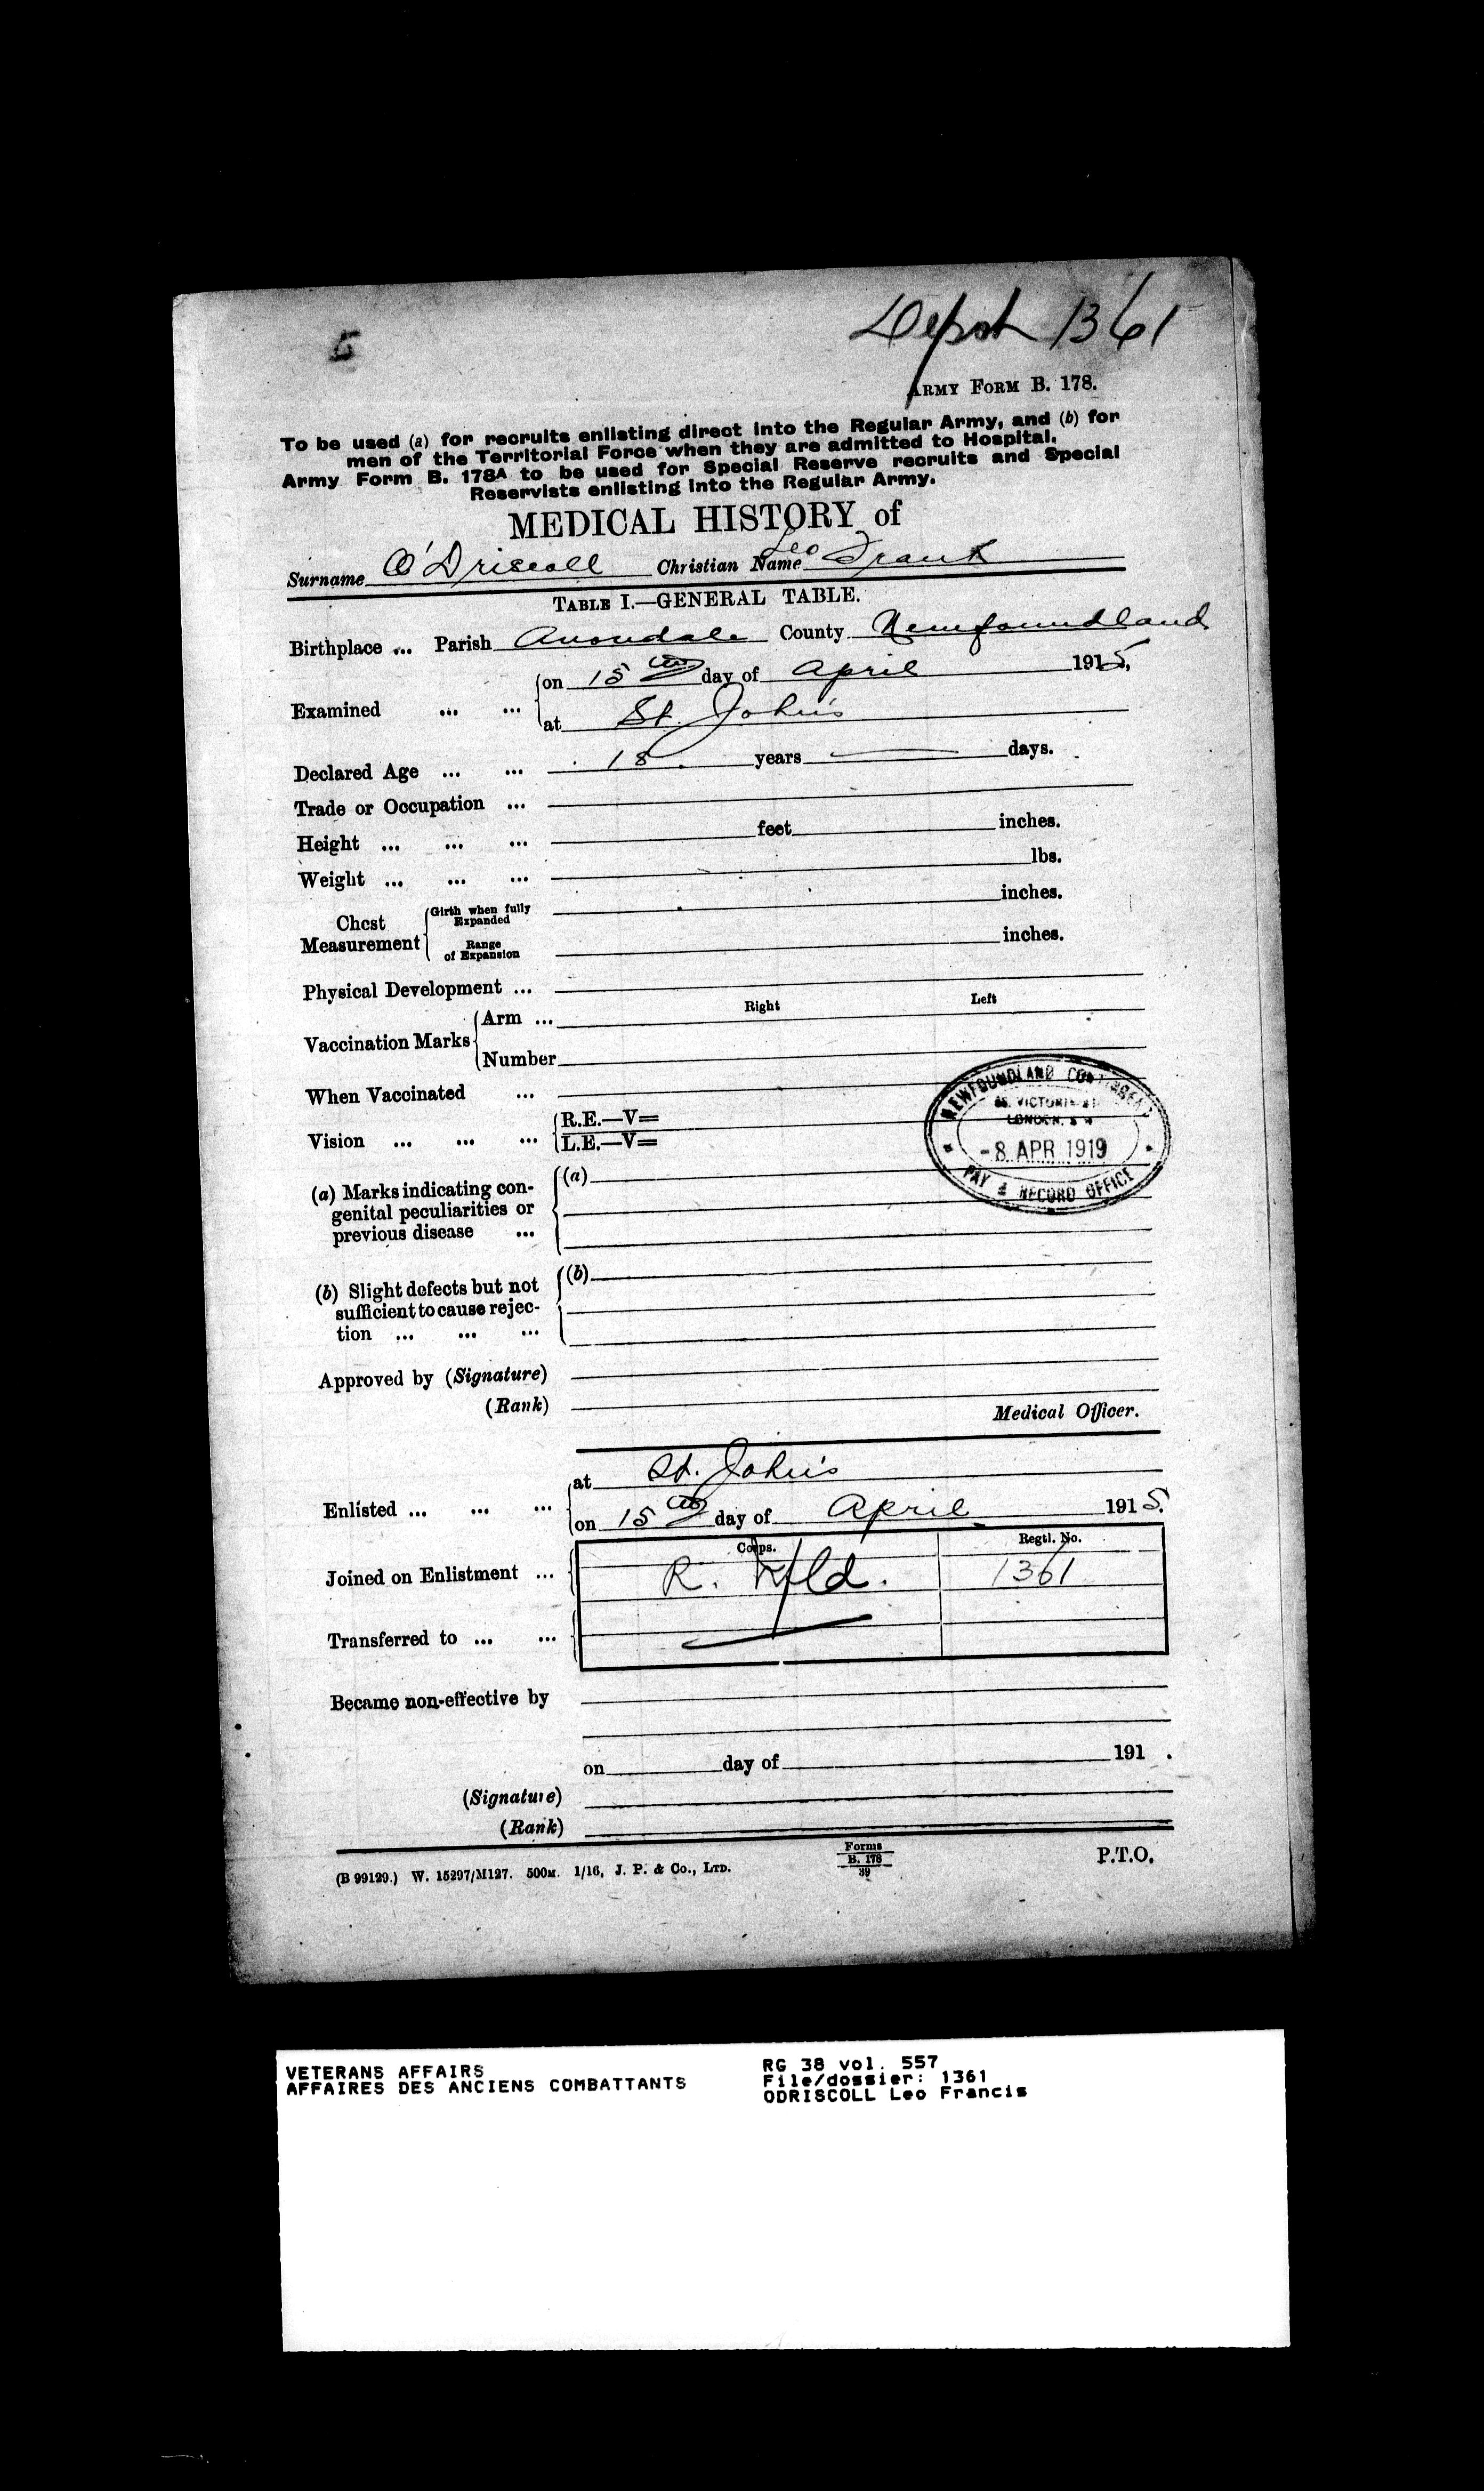 Depot 1361
ARMY FORM B. 178.
To be used (a) for recruits enlisting direct into the Regular Army, and (b) for
men of the Territorial Force when they are admitted to Hospital.
Army Form B. 178A to be used for Special Reserve recruits and Special
Reservists enlisting into the Regular Army.
MEDICAL HISTORY of
Surname O'Driscoll Christian Name Leo Frank
TABLE I.—GENERAL TABLE.
Birthplace ... Parish Avondale County Newfoundland
Examined ... ... on 15th day of April 1915.
at St. John's
Declared Age ... ... 18 years days.
Trade or Occupation ...
Height ... ... ... feet inches.
Weight ... ... ... lbs.
Chest Measurement Girth when fully Expanded inches.
Range of Expansion inches.
Physical Development ...
Right Left
Vaccination Marks Arm ...
Number
When Vaccinated ...
Vision ... ... ... R.E.—V=
L.E.—V=
NEWFOUNDLAND CONTINGENT
VICTORIA ST
LONDON, S W
-8 APR 1919
PAY & RECORD OFFICE
(a) Marks indicating con- (a)
genital peculiarities or
previous disease ...
(b) Slight defects but not (b)
sufficient to cause rejec-
tion ... ... ...
Approved by (Signature)
(Rank)
Medical Officer.
at St. John's
Enlisted ... ... ... on 15th day of April 1915.
Corps. Regtl. No.
Joined on Enlistment ... R. Nfld. 1361
Transferred to ... ...
Became non-effective by
on day of 191 .
(Signature)
(Rank)
(B 99129.) W. 15297/M127. 500M. 1/16. J. P. & Co., LTD. Forms B. 178 39 P.T.O.
VETERANS AFFAIRS
AFFAIRES DES ANCIENS COMBATTANTS
RG 38 vol. 557
File/dossier: 1361
ODRISCOLL Leo Francis